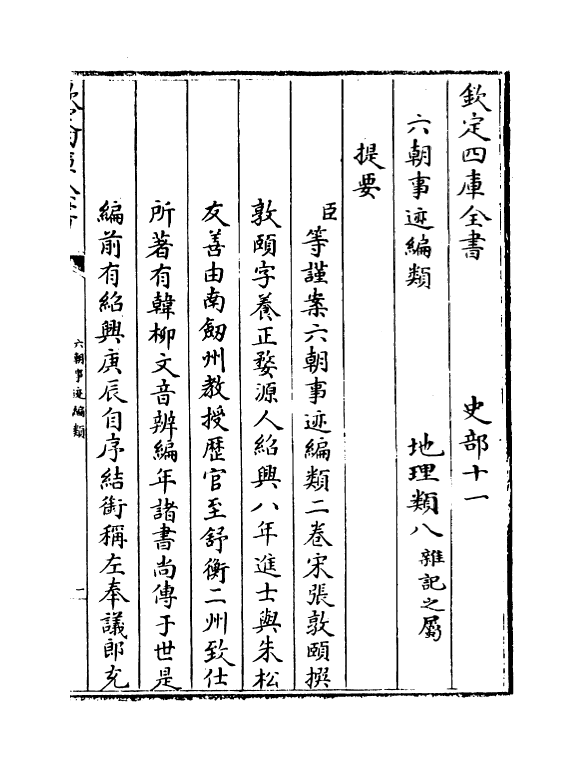 欽定四庫全書　史部十一
六朝事迹編類　地理類八雜記之屬
提要
臣等謹案六朝事迹編類二卷宋張敦頤撰
敦頤字養正婺源人紹興八年進士與朱松
友善由南劒州教授歴官至舒衡二州致仕
所著有韓柳文音辨編年諸書尚傳于世是
編前有紹興庚辰自序結銜稱左奉議郎充
六朝事迹編類